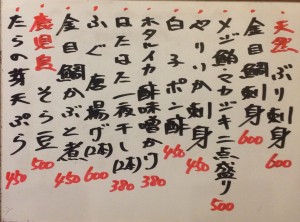 天然 ぶり刺身 600
金目鯛刺身 600
メジ鮪・マカジキ二点盛り 500
やりいか刺身 450
白子ポン酢 450
ホタルイカ酢味噌かけ 380
はたはた一夜干し(2本) 380
ふぐ唐揚げ(2本) 600
金目鯛かぶと煮 450
鹿児島 そら豆 500
たらの芽天ぷら 450